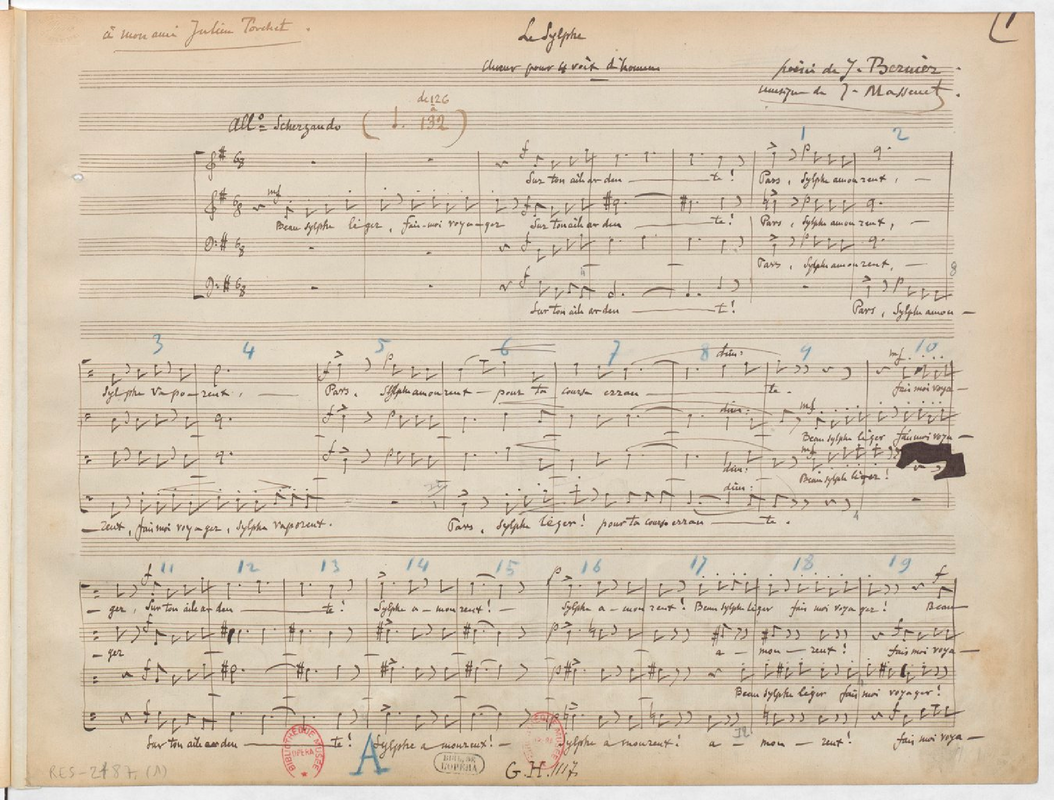 à mon ami Julien Torchet.
Le Sylphe
1
Chœur pour 4 voix d'hommes
poésie de J. Bernier.
musique de J. Massenet.
de 126
à
All° Scherzando (♩. 132)
1 2
Sur ton aile arden — te! Pars, Sylphe amoureux, —
mf
Beau sylphe léger, fais-moi voyager Sur ton aile arden — te! Pars, Sylphe amoureux, —
Pars, Sylphe amoureux, —
8
Sur ton aile arden — te! Pars, Sylphe amou —
3 4 5 6 7 8 dim: 9 10
mf
Sylphe vaporeux, — Pars, Sylphe amoureux — pour ta course erran — te. fais moi voya —
dim: mf
Beau sylphe léger fais moi voya —
mf
dim: Beau sylphe léger!
dim:
reux, fais moi voyager, sylphe vaporeux. Pars, Sylphe léger! pour ta course erran — te.
11 12 13 14 15 16 17 18 19
— ger, Sur ton aile arden — te! Sylphe a-moureux! — Sylphe a-moureux! Beau sylphe léger fais moi voyager! Beau
— ger a — mou — reux! fais moi voya —
Beau sylphe léger fais moi voyager!
Sur ton aile arden — te! Sylphe amoureux! — Sylphe amoureux! a — mou — reux! fais moi voya —
A
BIBLIOTHÈQUE MUSÉE
OPÉRA
G.H. 1117
RES-2187 (A)